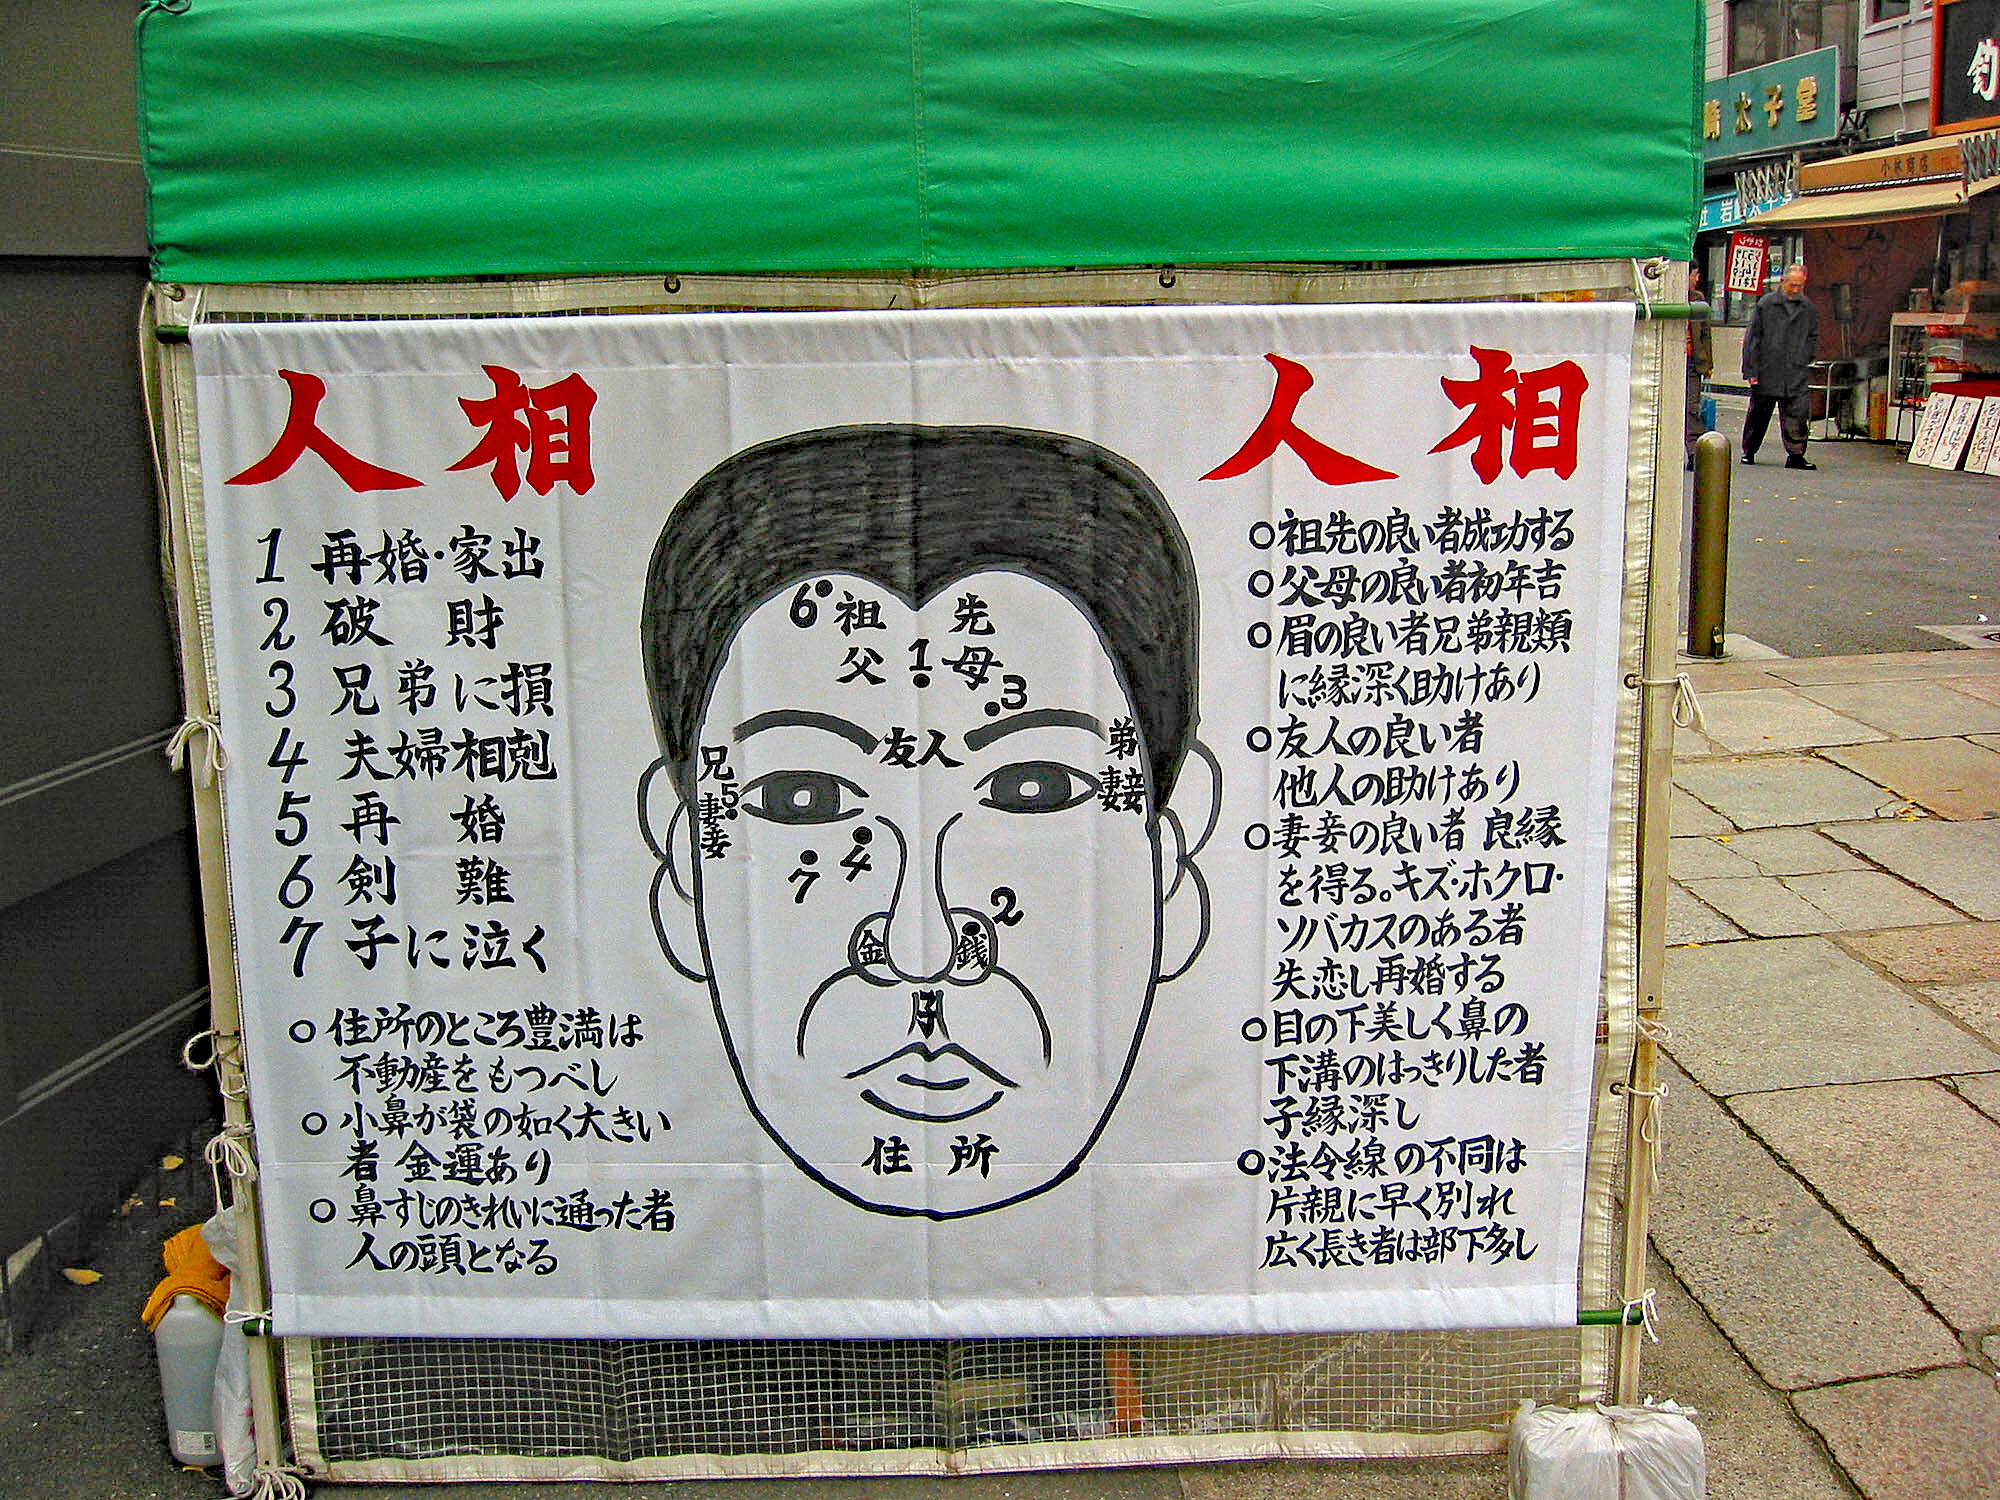 人相
1 再婚・家出
2 破財
3 兄弟に損
4 夫婦相剋
5 再婚
6 剣難
7 子に泣く
○住所のところ豊満は
不動産をもつべし
○小鼻が袋の如く大きい
者 金運あり
○鼻すじのきれいに通った者
人の頭となる
6 祖 先
父 1 母
3
兄 友人 弟
5
妻妾 妻妾
7 4
2
金 銭
子
住所
人相
○祖先の良い者成功する
○父母の良い者初年吉
○眉の良い者兄弟親類
に縁深く助けあり
○友人の良い者
他人の助けあり
○妻妾の良い者 良縁
を得る。キズ・ホクロ・
ソバカスのある者
失恋し再婚する
○目の下美しく鼻の
下溝のはっきりした者
子縁深し
○法令線の不同は
片親に早く別れ
広く長き者は部下多し
太子堂
小林商店
釣